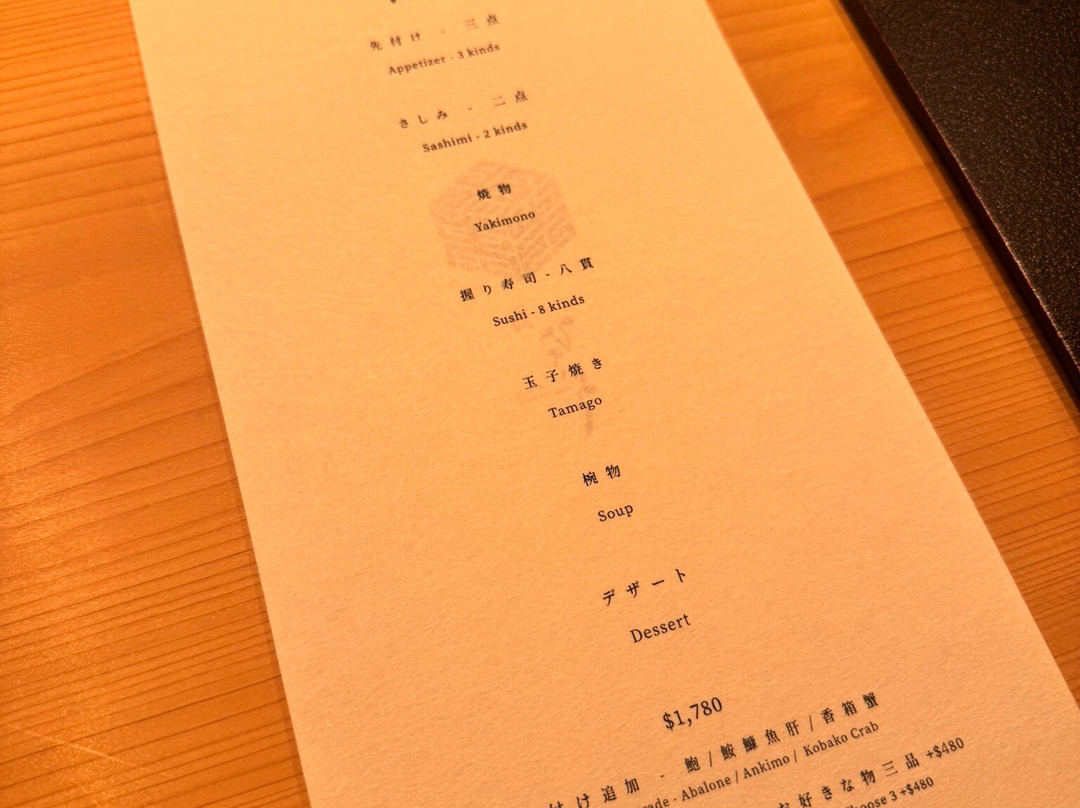 先付け - 三点
Appetizer - 3 kinds
さしみ - 二点
Sashimi - 2 kinds
焼物
Yakimono
握り寿司 - 八貫
Sushi - 8 kinds
玉子焼き
Tamago
椀物
Soup
デザート
Dessert
$1,780
付け追加 - 鮑 / 鮟鱇魚肝 / 香箱蟹
Abalone / Ankimo / Kobako Crab
お好きな物三品 +$480
Choose 3 +$480